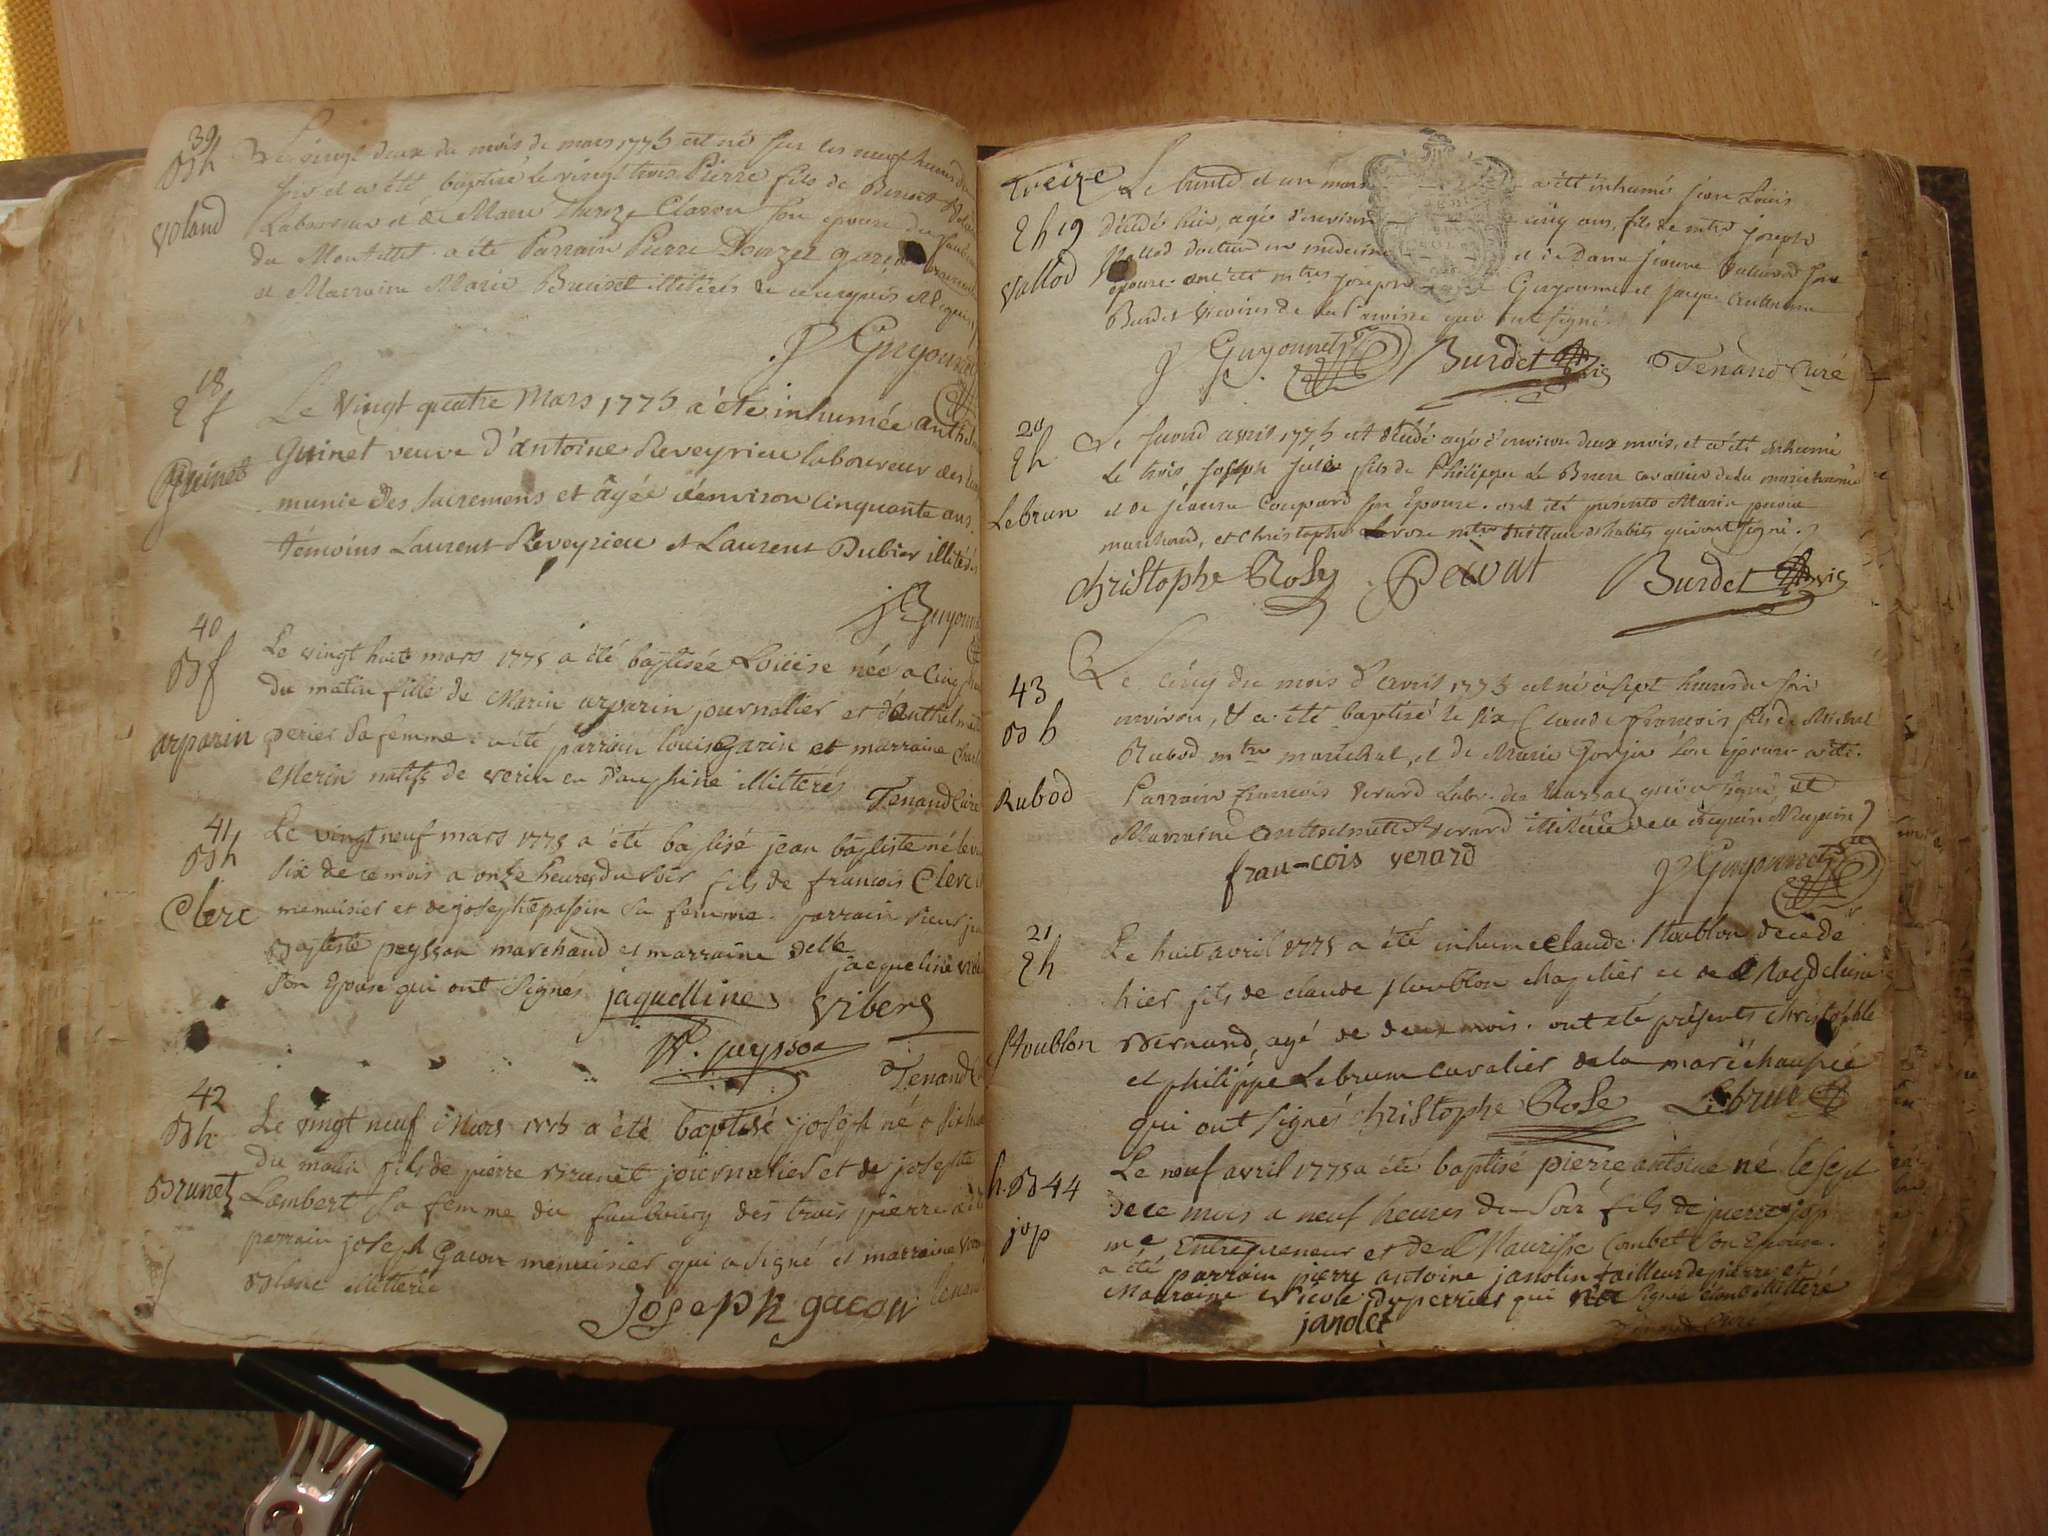 39
Bh
Voland
Le vingt deux du mois de mars 1775 est né sur les neuf heures du
soir et a été baptisé le vingt trois Pierre fils de Benoit
Laboureur et de Marie Claron son epouse du
du Montellet a été Parrain Pierre Donzel garçon
et Marraine Marie illiterés de ce requis
J Guyonnet
18
2 f
Guinet
Le Vingt quatre Mars 1775 a été inhumée anthel
Guinet veuve d'antoine Reveyrieu laboureur des
munie des sacremens et âgée d'environ cinquante ans.
témoins Laurent Reveyrieu et Laurent Dubier illitérés
J Guyonnet
40
Bf
arparin
Le vingt huit mars 1775 a été baptisée Loüise née a cinq
du matin fille de Marin arparin journalier et d'anthelmette
perier sa femme. a été parrain louis garin et marraine
Merin natifs de en Dauphiné illittérés
Tenand Curé
41
Bh
Clerc
Le vingt neuf mars 1775 a été baptisé jean baptiste né le
six de ce mois a onze heures du soir fils de francois Clerc
menuisier et de josephte passin sa femme. parrain sieur
Baptiste peysson marchand et marraine delle jacqueline
son Epouse qui ont signés jaquelline Vibert
peysson
Tenand
42
Bh
Brunet
Le vingt neuf Mars 1775 a été baptisé joseph né a six
du matin fils de pierre Brunet journalier et de josephte
Lambert sa femme du faubourg des trois pierre
parrain joseph Gacon menuisier qui a signé et marraine
Blanc illitterée
Joseph gacon
Treize
2 h 19
Vallod
Le trente et un mars a été inhumé jean Louis
décédé hier, agé d'environ cinq ans, fils de mtre joseph
Vallod docteur en medecine et de Dame jeanne son
epouse. ont été mtres joseph Guyonnet et jaque
Burdet vicaires de la Paroisse qui ont signé.
J Guyonnet Burdet Vic Tenand Curé
20
2h
Lebrun
Le second avril 1775 est décédé agé d'environ deux mois, et a été inhumé
le trois, joseph fils de Philippe Le Brun cavallier de la marechaussée
et de jeanne Coupard son Epouse. ont été présents
marchand, et Christophe mtre tailleur d'habits qui ont signé.
Christophe Rose Burdet Vic
43
Bh
Rubod
Le cinq du mois d'avril 1775 est né à sept heures du soir
environ, et a été baptisé le six Claude françois fils de Michel
Rubod mtre maréchal, et de Marie son épouse. a été
Parrain francois Verard Labr. qui a signé, et
Marraine anthelmette Verard illitérée de ce requise
fran-cois verard
J Guyonnet
21
2h
Stoublon
Le huit avril 1775 a été inhumé Claude Stoublon décédé
hier fils de claude Stoublon chapelier et de Magdelaine
Bernand, agé de deux mois. ont été présents christophle
et philippe Lebrun cavalier de la maréchaussée
qui ont signés christophe Rose Lebrun
h. B 44
jop
Le neuf avril 1775 a été baptisé pierre antoine né le sept
de ce mois a neuf heures du soir fils de pierre jop
me Entrepreneur et de Maurisse Combet son Epouse.
a été parrain pierre antoine janolin tailleur de pierre et
Marraine duperrier qui
janolet
Tenand Curé